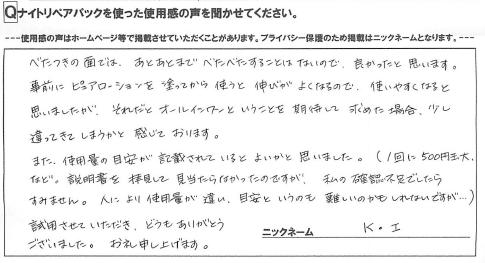 Qナイトリペアパックを使った使用感の声を聞かせてください。
---使用感の声はホームページ等で掲載させていただくことがあります。プライバシー保護のため掲載はニックネームとなります。---
べたつきの面では、あとあとまでべたべたすることはないので、良かったと思います。
事前にピュアローションを塗ってから使うと伸びがよくなるので、使いやすくなると
思いましたが、それだとオールインワンということを期待して求めた場合、少し
違ってきてしまうかと感じております。
また、使用量の目安が記載されているとよいかと思いました。(1回に500円玉大、
など。説明書を拝見して見当たらなかったのですが、私の確認不足でしたら
すみません。人により使用量が違い、目安というのも難しいのかもしれないですが…)
試用させていただき、どうもありがとう
ございました。お礼申し上げます。
ニックネーム K・I